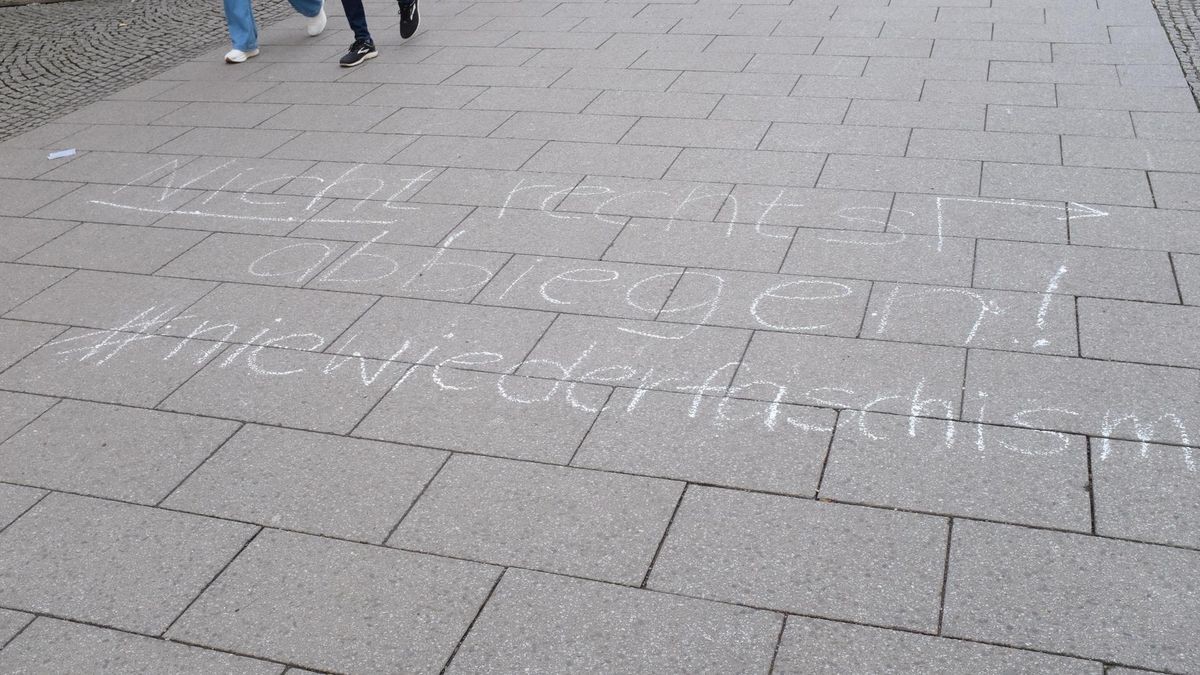 Nicht rechts
abbiegen!
#niewiederfaschism